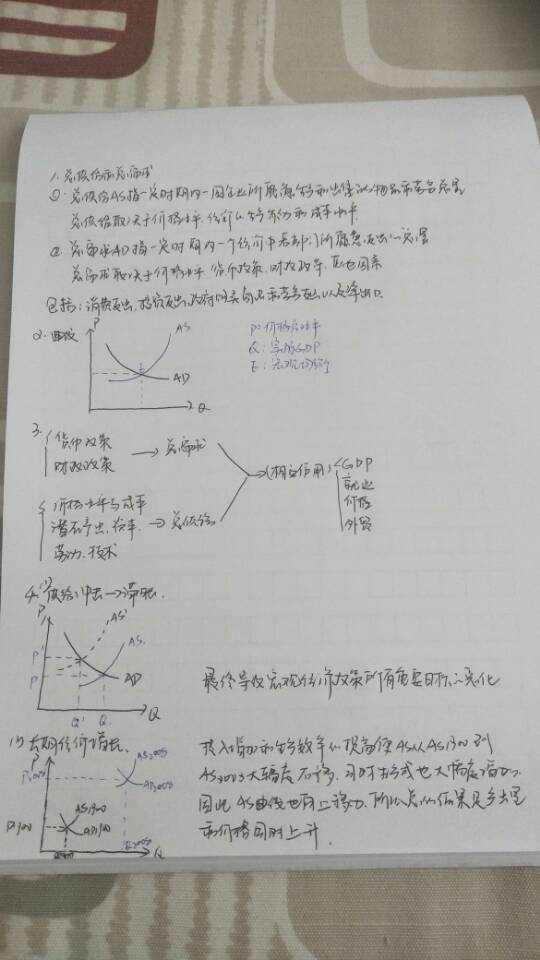 1. 总供给和总需求
①. 总供给AS指一定时期内一国企业所愿意生产和出售的物品和劳务总量
总供给取决于价格水平,经济的生产能力和成本水平
②. 总需求AD指一定时期内一个经济中各部门所愿意支出的总量
总需求取决于价格水平,货币政策,财政政策,其他因素
包括:消费支出,投资支出,政府购买商品和劳务支出以及净出口.
2. 曲线
P
AS
AD
Q
E
P: 价格总水平
Q: 实际GDP
E: 宏观均衡
3.
货币政策
财政政策
→ 总需求
价格水平与成本
潜在产出,
劳动,技术
→ 总供给
→(相互作用)
GDP
就业
价格
外贸
4. (1) 供给冲击→滞胀.
P
AS'
AS
P'
P
AD
Q'
Q
Q
最终导致宏观经济政策所有重要目标的恶化
(2) 长期经济增长.
P
P2000
AS2000
AD2000
P1900
AS1900
AD1900
Q2000
Q
投入增加和生产效率的提高使AS从AS1900到
AS2000大幅度右移,同时
因此AS曲线也向上移动,所以总的结果是产出量
和价格同时上升.